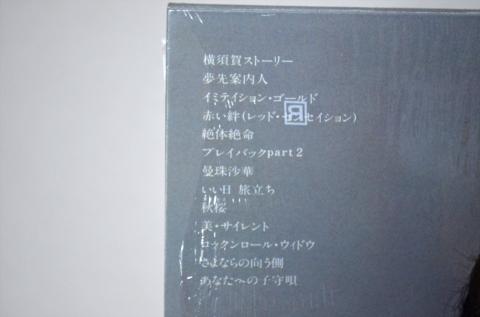 横須賀ストーリー
夢先案内人
イミテイション・ゴールド
赤い絆(レッド・センセイション)
絶体絶命
プレイバックpart 2
曼珠沙華
いい日 旅立ち
秋桜
美・サイレント
ロックンロール・ウィドウ
さよならの向う側
あなたへの子守唄
R